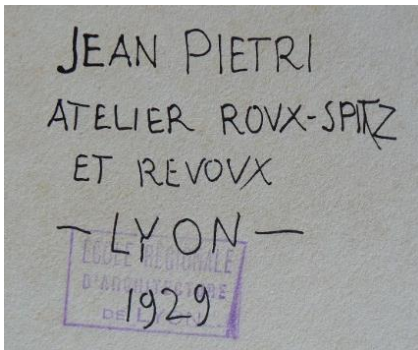 JEAN PIETRI
ATELIER ROVX-SPITZ
ET REVOVX
— LYON —
ECOLE RÉGIONALE
D'ARCHITECTURE
1929
DE LYON